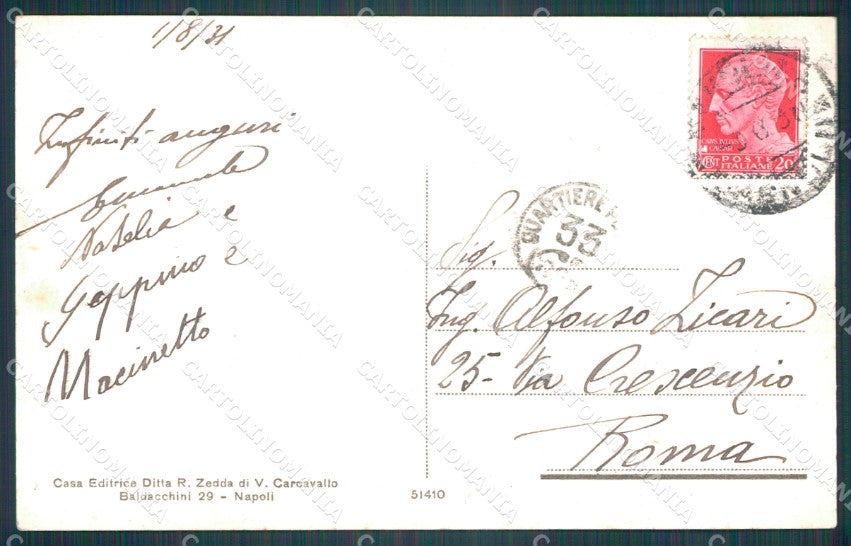 1/8/31
Infiniti auguri
Emanuele
Natalia e
Geppino e
Macinnetto
Casa Editrice Ditta R. Zedda di V. Carcavallo
Baldacchini 29 - Napoli
51410
CAIVS IVLIVS
CAESAR
CENT POSTE 20
ITALIANE
QUARTIERE
33
Sig.
Ing. Alfonso Zicari
25 - Via Crescenzio
Roma
CARTOLINOMANIA